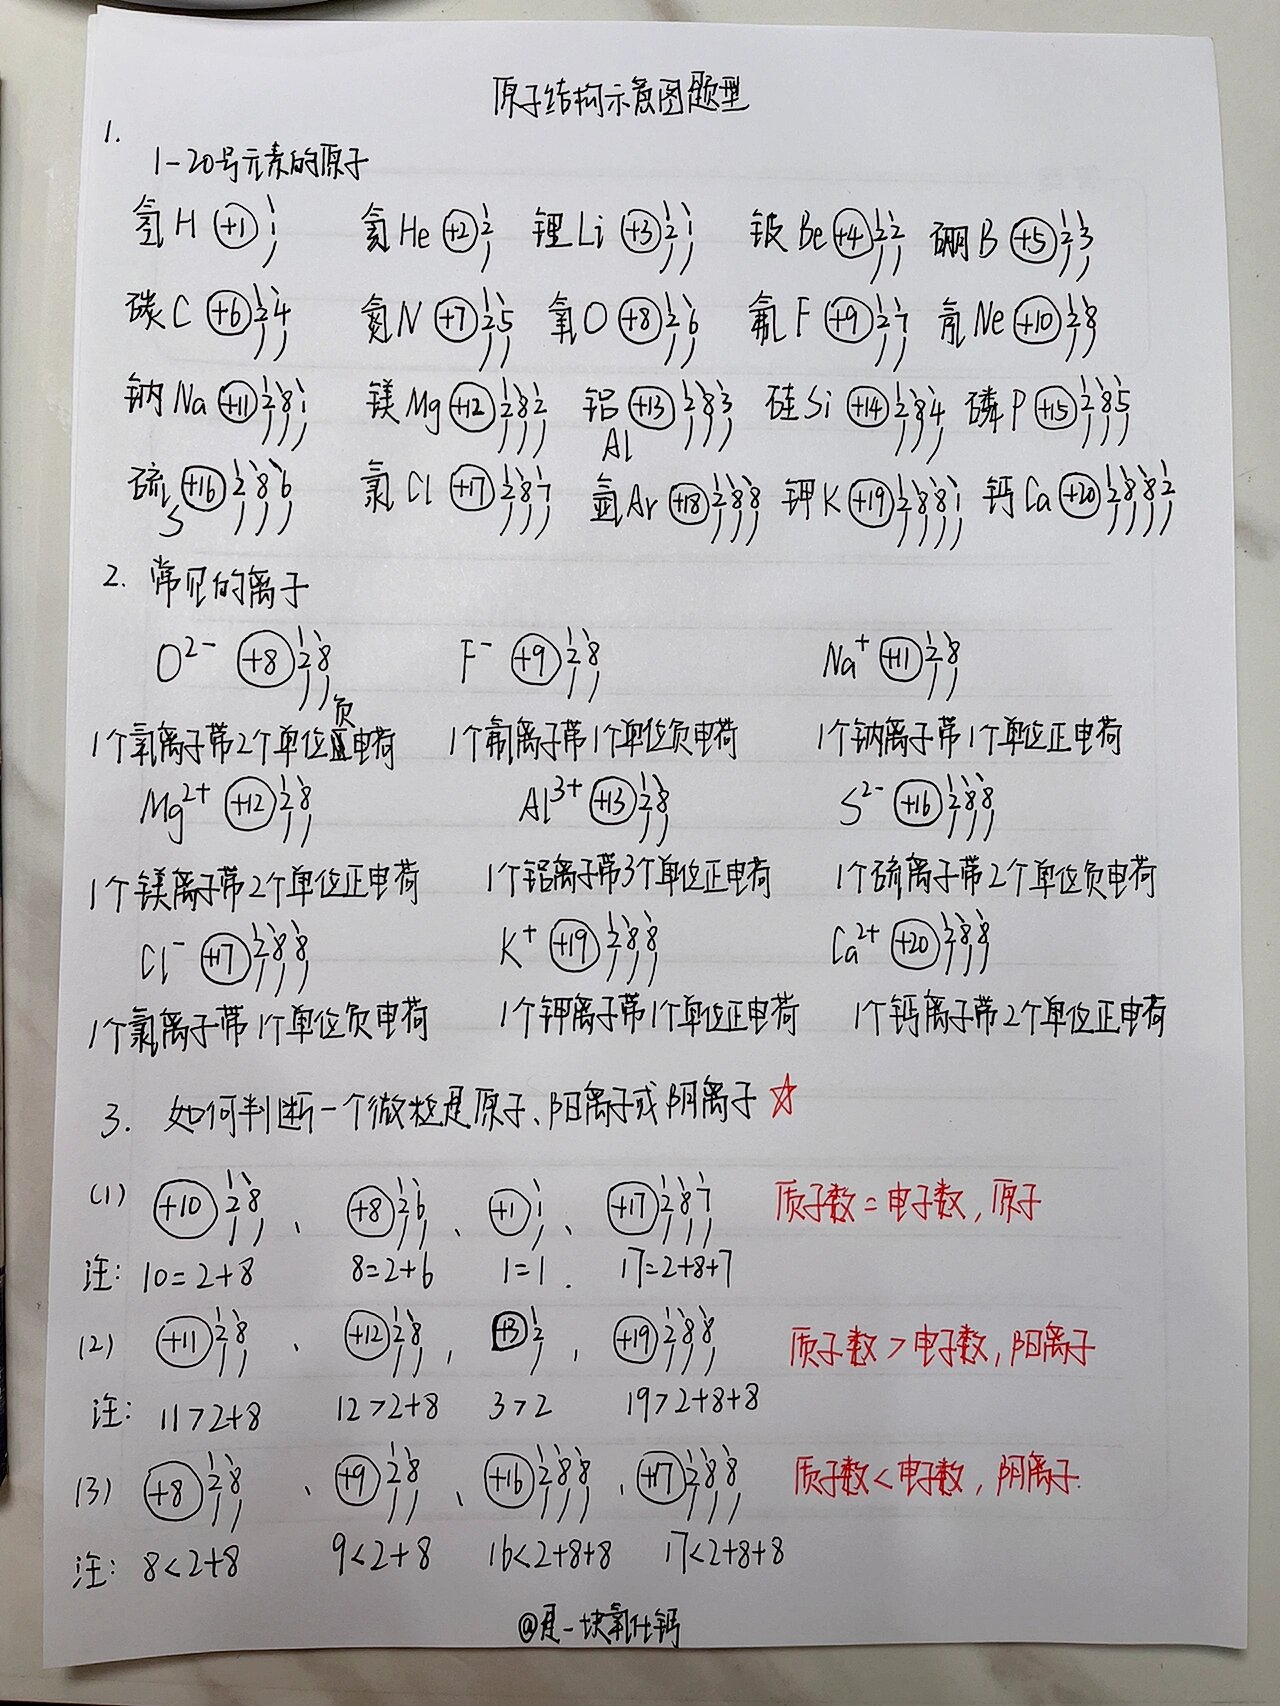 原子结构示意图题型
1.
1-20号元素的原子
氢 H (+1) 1 氦 He (+2) 2 锂 Li (+3) 2 1 铍 Be (+4) 2 2 硼 B (+5) 2 3
碳 C (+6) 2 4 氮 N (+7) 2 5 氧 O (+8) 2 6 氟 F (+9) 2 7 氖 Ne (+10) 2 8
钠 Na (+11) 2 8 1 镁 Mg (+12) 2 8 2 铝 Al (+13) 2 8 3 硅 Si (+14) 2 8 4 磷 P (+15) 2 8 5
硫 S (+16) 2 8 6 氯 Cl (+17) 2 8 7 氩 Ar (+18) 2 8 8 钾 K (+19) 2 8 8 1 钙 Ca (+20) 2 8 8 2
2. 常见的离子
O²⁻ (+8) 2 8 F⁻ (+9) 2 8 Na⁺ (+11) 2 8
1个氧离子带2个单位负电荷 1个氟离子带1个单位负电荷 1个钠离子带1个单位正电荷
Mg²⁺ (+12) 2 8 Al³⁺ (+13) 2 8 S²⁻ (+16) 2 8 8
1个镁离子带2个单位正电荷 1个铝离子带3个单位正电荷 1个硫离子带2个单位负电荷
Cl⁻ (+17) 2 8 8 K⁺ (+19) 2 8 8 Ca²⁺ (+20) 2 8 8
1个氯离子带1个单位负电荷 1个钾离子带1个单位正电荷 1个钙离子带2个单位正电荷
3. 如何判断一个微粒是原子、阳离子或阴离子 ☆
(1) (+10) 2 8 、 (+8) 2 6 、 (+1) 1 、 (+17) 2 8 7 质子数=电子数,原子
注: 10=2+8 8=2+6 1=1. 17=2+8+7
(2) (+11) 2 8 、 (+12) 2 8 , (+3) 2 , (+19) 2 8 8 质子数>电子数,阳离子
注: 11>2+8 12>2+8 3>2 19>2+8+8
(3) (+8) 2 8 、 (+9) 2 8 、 (+16) 2 8 8 、 (+17) 2 8 8 质子数<电子数,阴离子.
注: 8<2+8 9<2+8 16<2+8+8 17<2+8+8
@是一块氧化钙